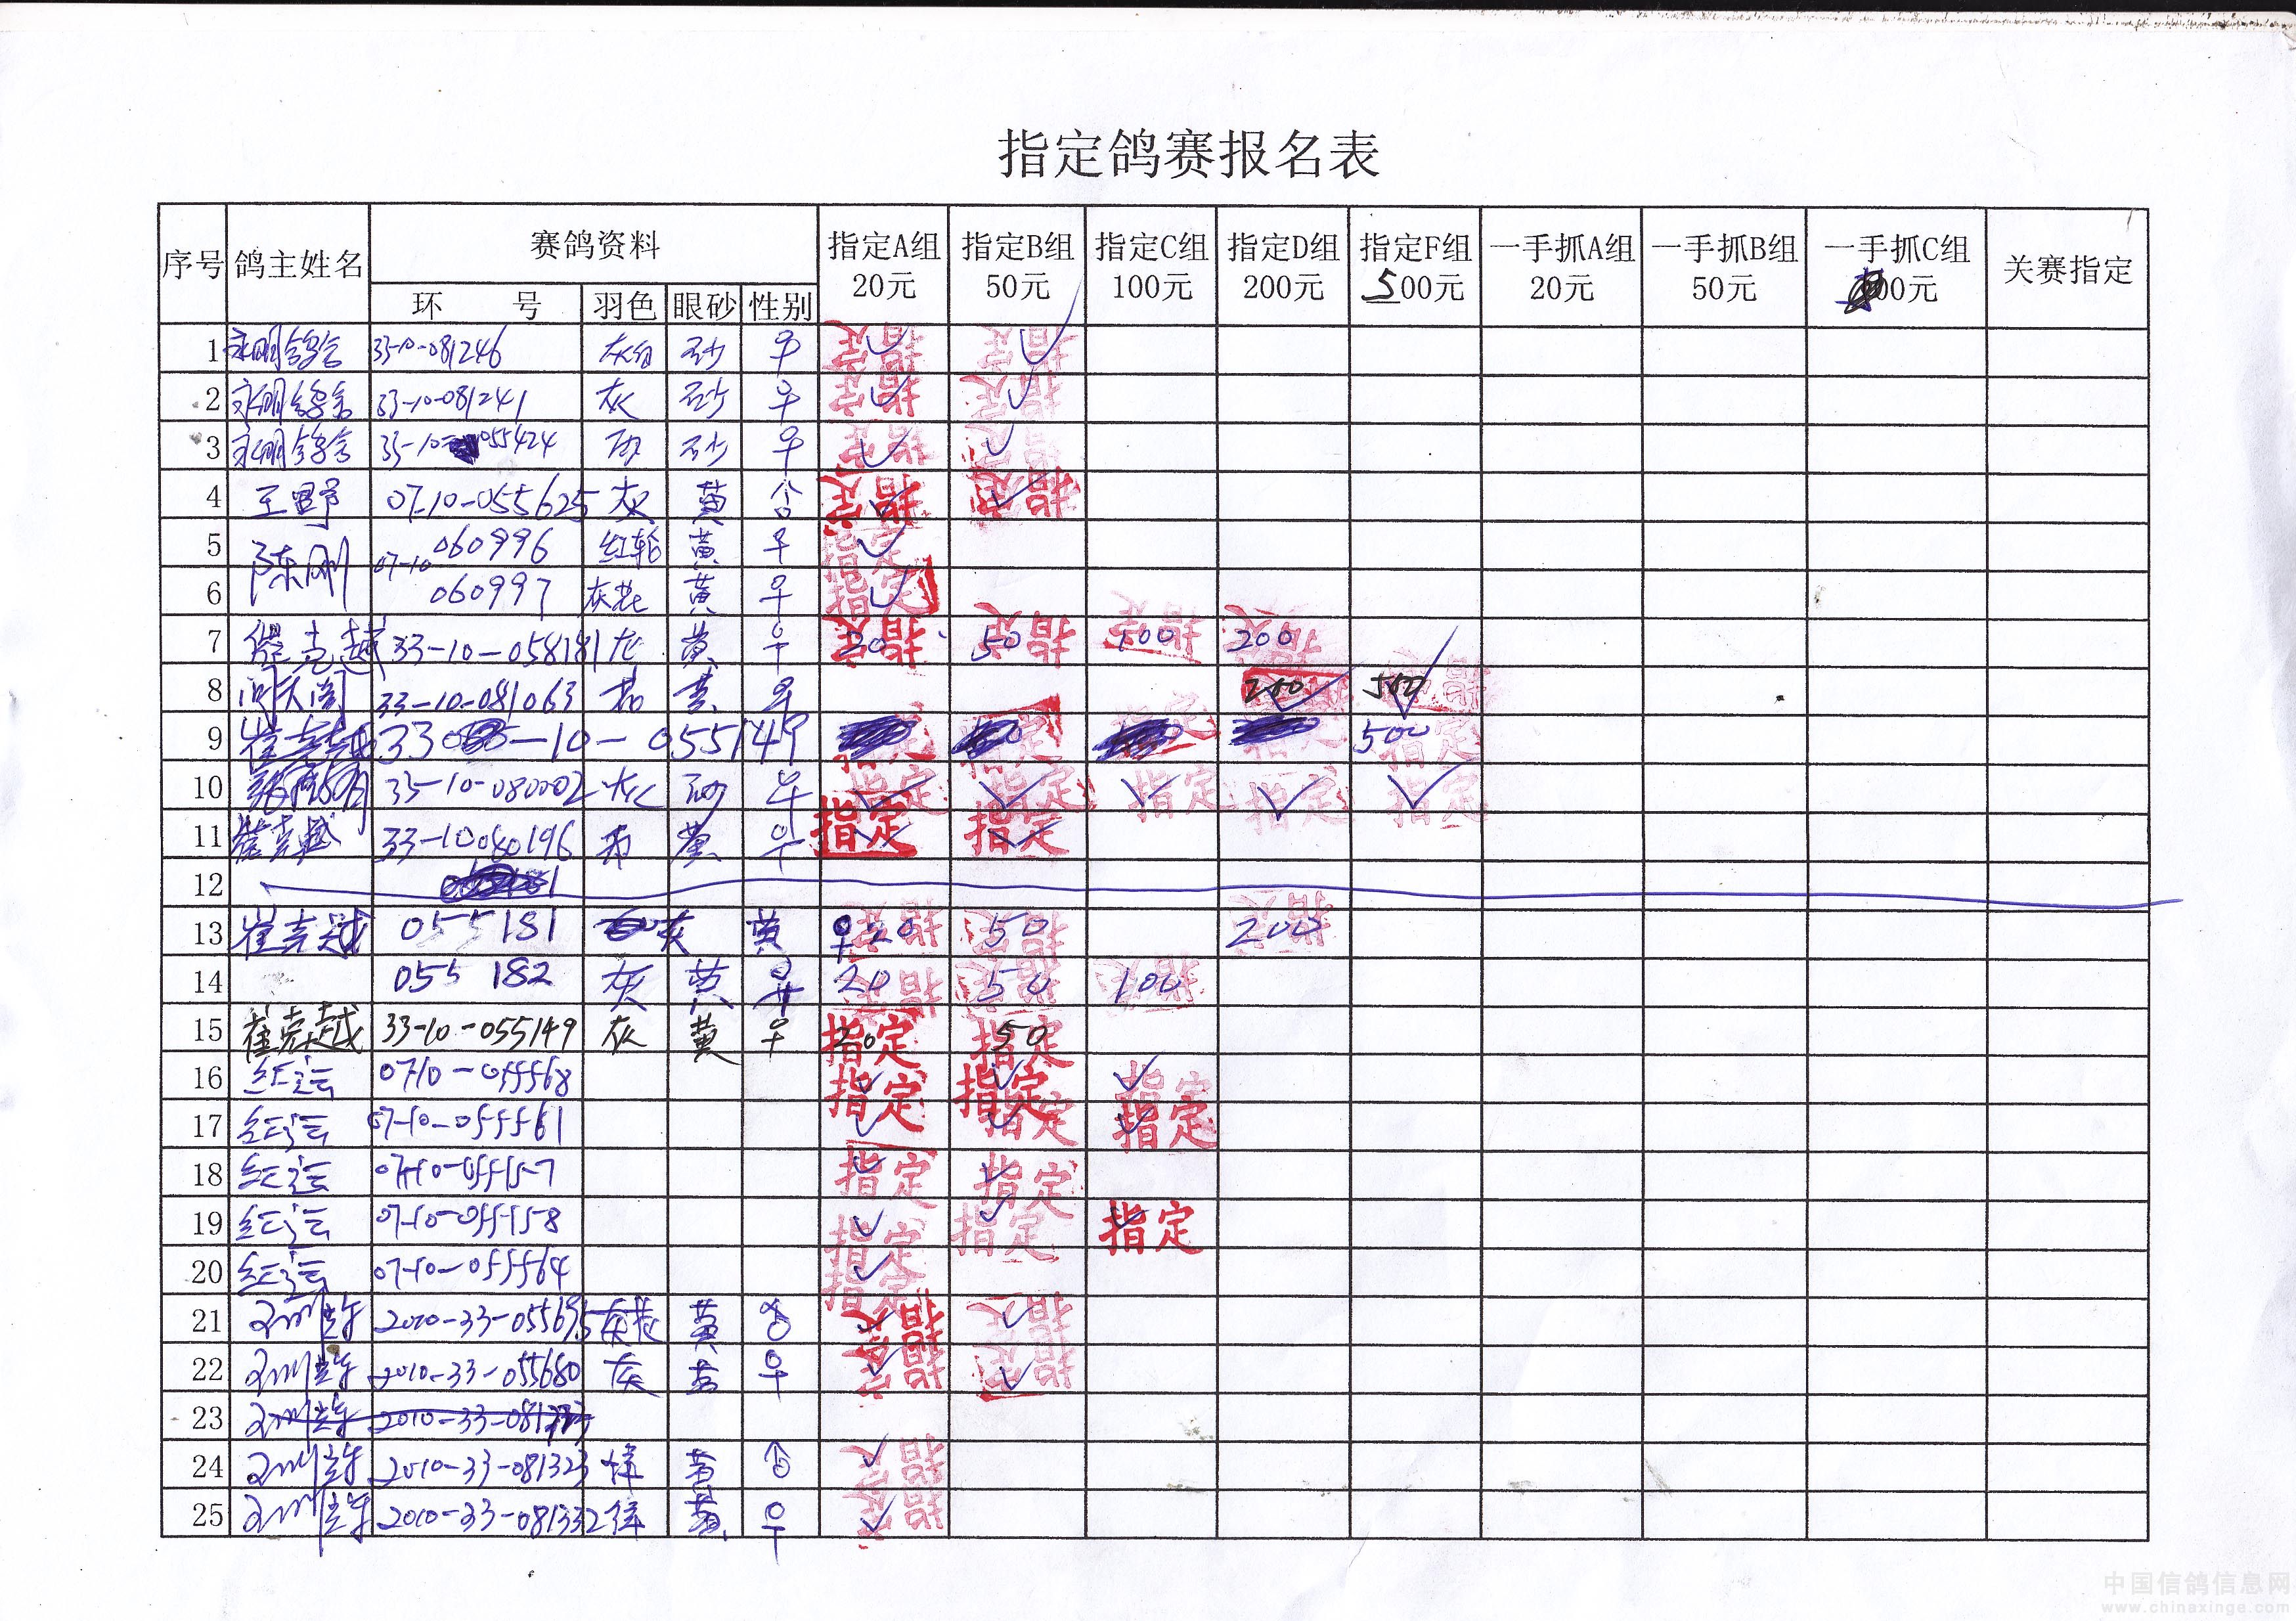 指定鸽赛报名表
序号 鸽主姓名 赛鸽资料 指定A组 20元 指定B组 50元 指定C组 100元 指定D组 200元 指定F组 500元 一手抓A组 20元 一手抓B组 50元 一手抓C组 00元 关赛指定
环 号 羽色 眼砂 性别
1 永明鸽舍 33-10-081246 灰白 砂 ♀ 指定 指定
2 永明鸽舍 33-10-081241 灰 砂 ♀ 指定 指定
3 永明鸽舍 33-10-055424 砂 ♀ 指定 指定
4 王野 07-10-055625 灰 黄 指定 指定
5 陈刚 07-10 060996 红轮 黄 ♀ 指定
6 060997 灰花 黄 ♀ 指定
7 崔克越 33-10-058181 灰 黄 ♀ 20 指定 50 指定 100 指定 200 指定
8 33-10-081063 黄 ♀ 200 指定 500 指定
9 崔克越 33 -10-055149 指定 指定 指定 指定 500 指定
10 33-10-080002 灰 砂 ♀ 指定 指定 指定 指定 指定
11 崔克越 33-10080196 黄 ♀ 指定 指定
12
13 崔克越 055181 灰 黄 ♀ 20 指定 50 指定 200 指定
14 055182 灰 黄 ♀ 20 指定 50 指定 100 指定
15 崔克越 33-10-055149 灰 黄 ♀ 20 指定 50 指定
16 红运 0710-055568 指定 指定 指定
17 红运 07-10-055561 指定 指定 指定
18 红运 07-10-055157 指定 指定
19 红运 07-10-055158 指定 指定 指定
20 红运 07-10-055564 指定
21 2010-33-055695 灰花 黄 指定 指定
22 2010-33-055680 灰 黄 ♀ 指定 指定
23 2010-33-081
24 2010-33-081323 黄 指定
25 2010-33-081332 黄 ♀ 指定
中国信鸽信息网
www.chinaxinge.com